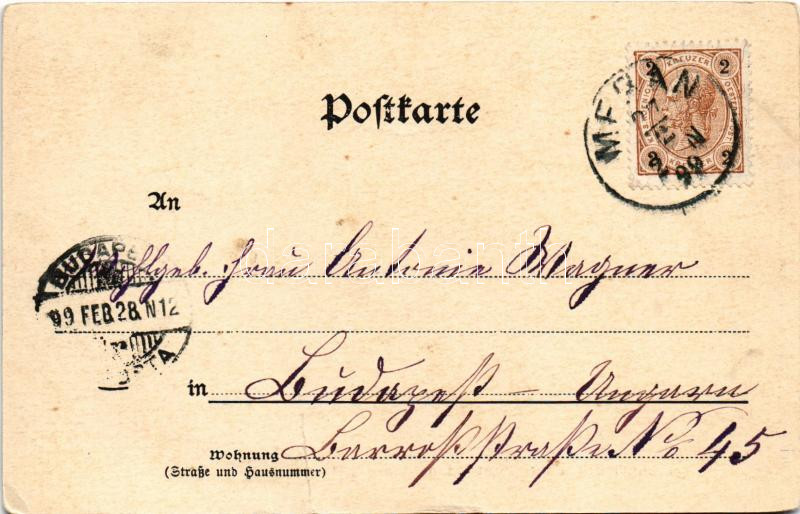 2 KREUZER 2
2 2
MERAN
99
Postkarte
An
Wohlgeb. Frau Antonie Wagner
BUDAPEST
99 FEB. 28. N 12
POSTA
in Budapest – Ungarn
Wohnung Barrossstraße No 45
(Straße und Hausnummer)